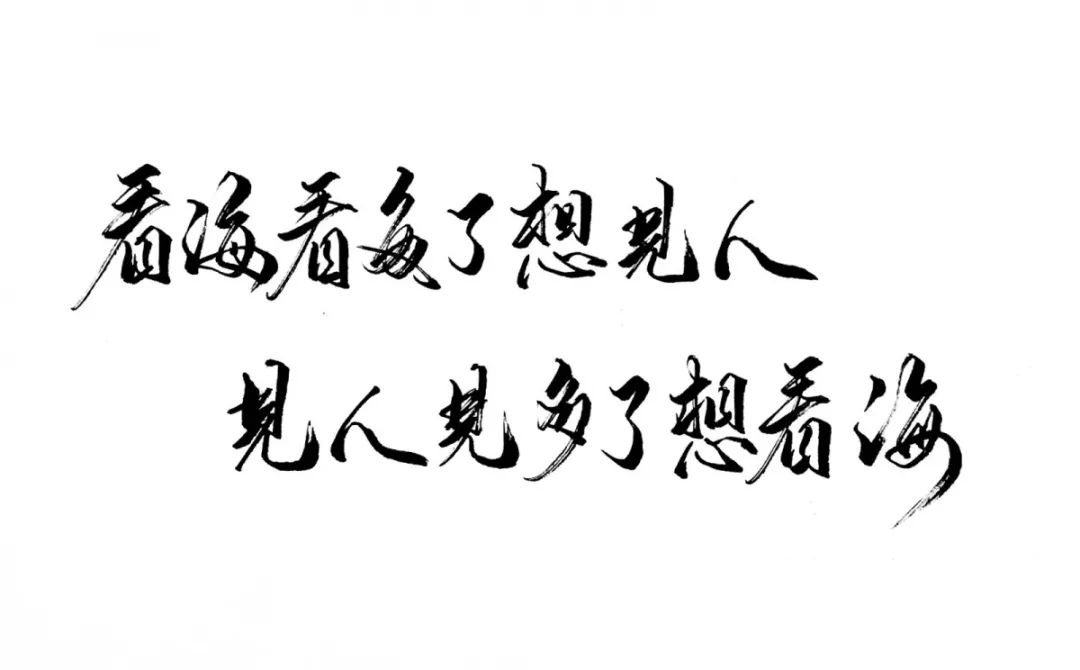 看海看多了想見人
見人見多了想看海